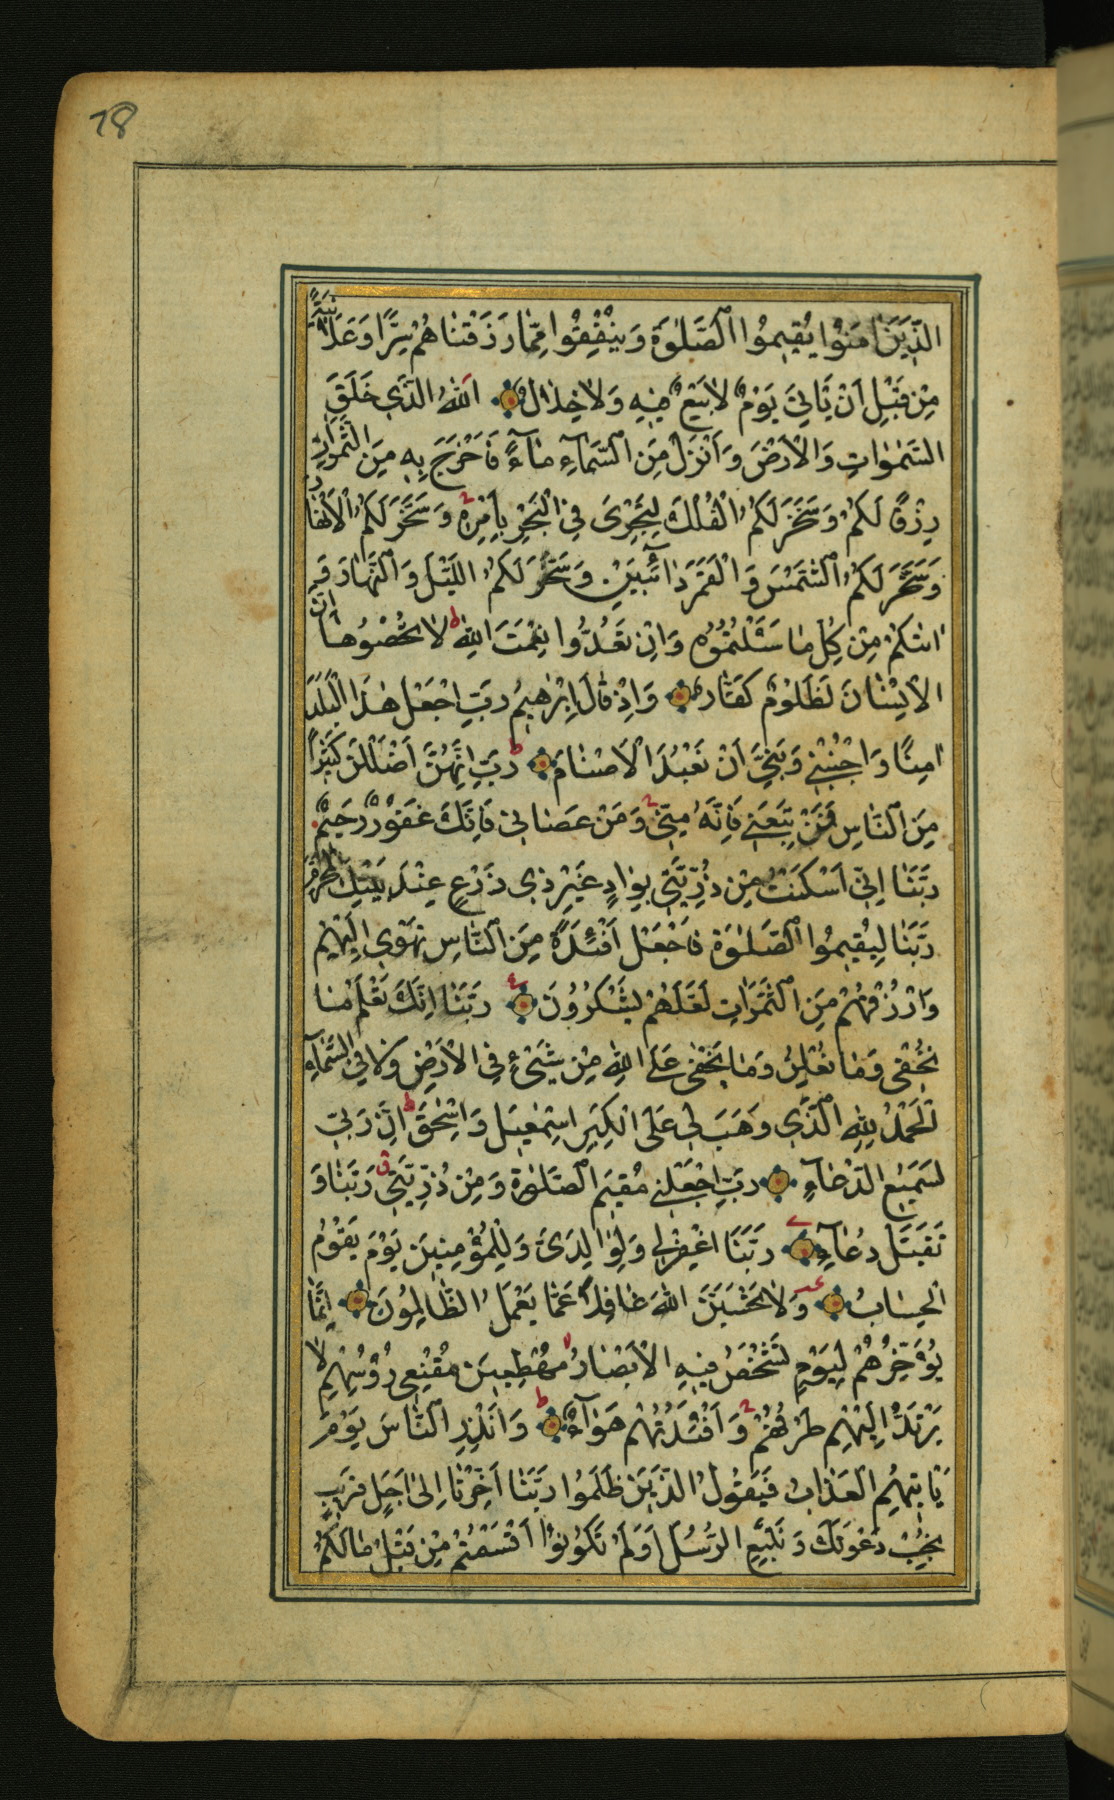 78
الَّذِينَ اٰمَنُوا يُقِيمُوا الصَّلٰوةَ وَيُنْفِقُوا مِمَّا رَزَقْنَاهُمْ سِرًّا وَعَلَانِيَةً
مِنْ قَبْلِ اَنْ يَأْتِيَ يَوْمٌ لَا بَيْعٌ فِيهِ وَلَا خِلَالٌ اَللّٰهُ الَّذِي خَلَقَ
السَّمٰوَاتِ وَالْاَرْضَ وَاَنْزَلَ مِنَ السَّمَاءِ مَاءً فَاَخْرَجَ بِهِ مِنَ الثَّمَرَاتِ
رِزْقًا لَكُمْ وَسَخَّرَ لَكُمُ الْفُلْكَ لِتَجْرِيَ فِي الْبَحْرِ بِاَمْرِهِ وَسَخَّرَ لَكُمُ الْاَنْهَارَ
وَسَخَّرَ لَكُمُ الشَّمْسَ وَالْقَمَرَ دَائِبَيْنِ وَسَخَّرَ لَكُمُ اللَّيْلَ وَالنَّهَارَ وَ
اٰتٰيكُمْ مِنْ كُلِّ مَا سَئَلْتُمُوهُ وَاِنْ تَعُدُّوا نِعْمَتَ اللّٰهِ لَا تُحْصُوهَا اِنَّ
الْاِنْسَانَ لَظَلُومٌ كَفَّارٌ وَاِذْ قَالَ اِبْرٰهِيمُ رَبِّ اجْعَلْ هٰذَا الْبَلَدَ
اٰمِنًا وَاجْنُبْنِي وَبَنِيَّ اَنْ نَعْبُدَ الْاَصْنَامَ رَبِّ اِنَّهُنَّ اَضْلَلْنَ كَثِيرًا
مِنَ النَّاسِ فَمَنْ تَبِعَنِي فَاِنَّهُ مِنِّي وَمَنْ عَصَانِي فَاِنَّكَ غَفُورٌ رَحِيمٌ
رَبَّنَا اِنِّي اَسْكَنْتُ مِنْ ذُرِّيَّتِي بِوَادٍ غَيْرِ ذِي زَرْعٍ عِنْدَ بَيْتِكَ الْمُحَرَّمِ
رَبَّنَا لِيُقِيمُوا الصَّلٰوةَ فَاجْعَلْ اَفْئِدَةً مِنَ النَّاسِ تَهْوِي اِلَيْهِمْ
وَارْزُقْهُمْ مِنَ الثَّمَرَاتِ لَعَلَّهُمْ يَشْكُرُونَ رَبَّنَا اِنَّكَ تَعْلَمُ مَا
نُخْفِي وَمَا نُعْلِنُ وَمَا يَخْفٰى عَلَى اللّٰهِ مِنْ شَيْءٍ فِي الْاَرْضِ وَلَا فِي السَّمَاءِ
اَلْحَمْدُ لِلّٰهِ الَّذِي وَهَبَ لِي عَلَى الْكِبَرِ اِسْمٰعِيلَ وَاِسْحٰقَ اِنَّ رَبِّي
لَسَمِيعُ الدُّعَاءِ رَبِّ اجْعَلْنِي مُقِيمَ الصَّلٰوةِ وَمِنْ ذُرِّيَّتِي رَبَّنَا وَ
تَقَبَّلْ دُعَاءِ رَبَّنَا اغْفِرْ لِي وَلِوَالِدَيَّ وَلِلْمُؤْمِنِينَ يَوْمَ يَقُومُ
الْحِسَابُ وَلَا تَحْسَبَنَّ اللّٰهَ غَافِلًا عَمَّا يَعْمَلُ الظَّالِمُونَ اِنَّمَا
يُؤَخِّرُهُمْ لِيَوْمٍ تَشْخَصُ فِيهِ الْاَبْصَارُ مُهْطِعِينَ مُقْنِعِي رُؤُسِهِمْ لَا
يَرْتَدُّ اِلَيْهِمْ طَرْفُهُمْ وَاَفْئِدَتُهُمْ هَوَاءٌ وَاَنْذِرِ النَّاسَ يَوْمَ
يَأْتِيهِمُ الْعَذَابُ فَيَقُولُ الَّذِينَ ظَلَمُوا رَبَّنَا اَخِّرْنَا اِلٰى اَجَلٍ قَرِيبٍ
نُجِبْ دَعْوَتَكَ وَنَتَّبِعِ الرُّسُلَ اَوَلَمْ تَكُونُوا اَقْسَمْتُمْ مِنْ قَبْلُ مَا لَكُمْ